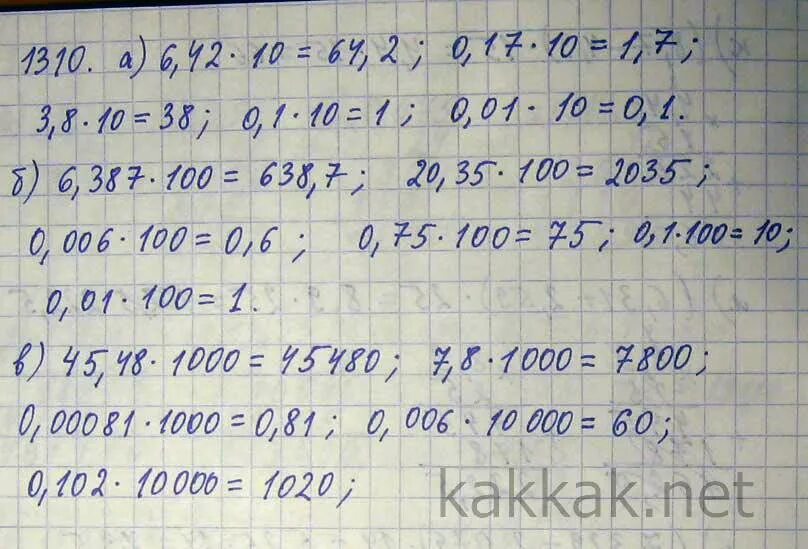 1310. а) 6,42 · 10 = 64,2 ; 0,17 · 10 = 1,7 ;
3,8 · 10 = 38 ; 0,1 · 10 = 1 ; 0,01 · 10 = 0,1.
б) 6,387 · 100 = 638,7 ; 20,35 · 100 = 2035 ;
0,006 · 100 = 0,6 ; 0,75 · 100 = 75 ; 0,1 · 100 = 10 ;
0,01 · 100 = 1.
в) 45,48 · 1000 = 45480 ; 7,8 · 1000 = 7800 ;
0,00081 · 1000 = 0,81 ; 0,006 · 10 000 = 60 ;
0,102 · 10 000 = 1020 ;
kakkak.net